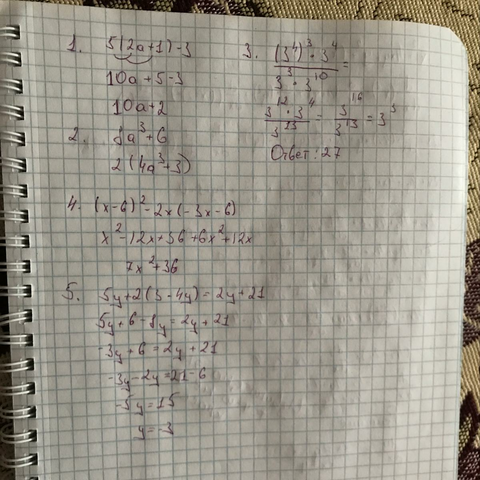 1. 5(2a+1)-3
10a+5-3
10a+2
2. 8a³+6
2(4a³+3)
3. (3⁴)³·3⁴ / 3³·3¹⁰ =
3¹²·3⁴ / 3¹³ = 3¹⁶ / 3¹³ = 3³
Ответ: 27
4. (x-6)²-2x(-3x-6)
x²-12x+36+6x²+12x
7x²+36
5. 5y+2(3-4y)=2y+21
5y+6-8y=2y+21
-3y+6=2y+21
-3y-2y=21-6
-5y=15
y=-3